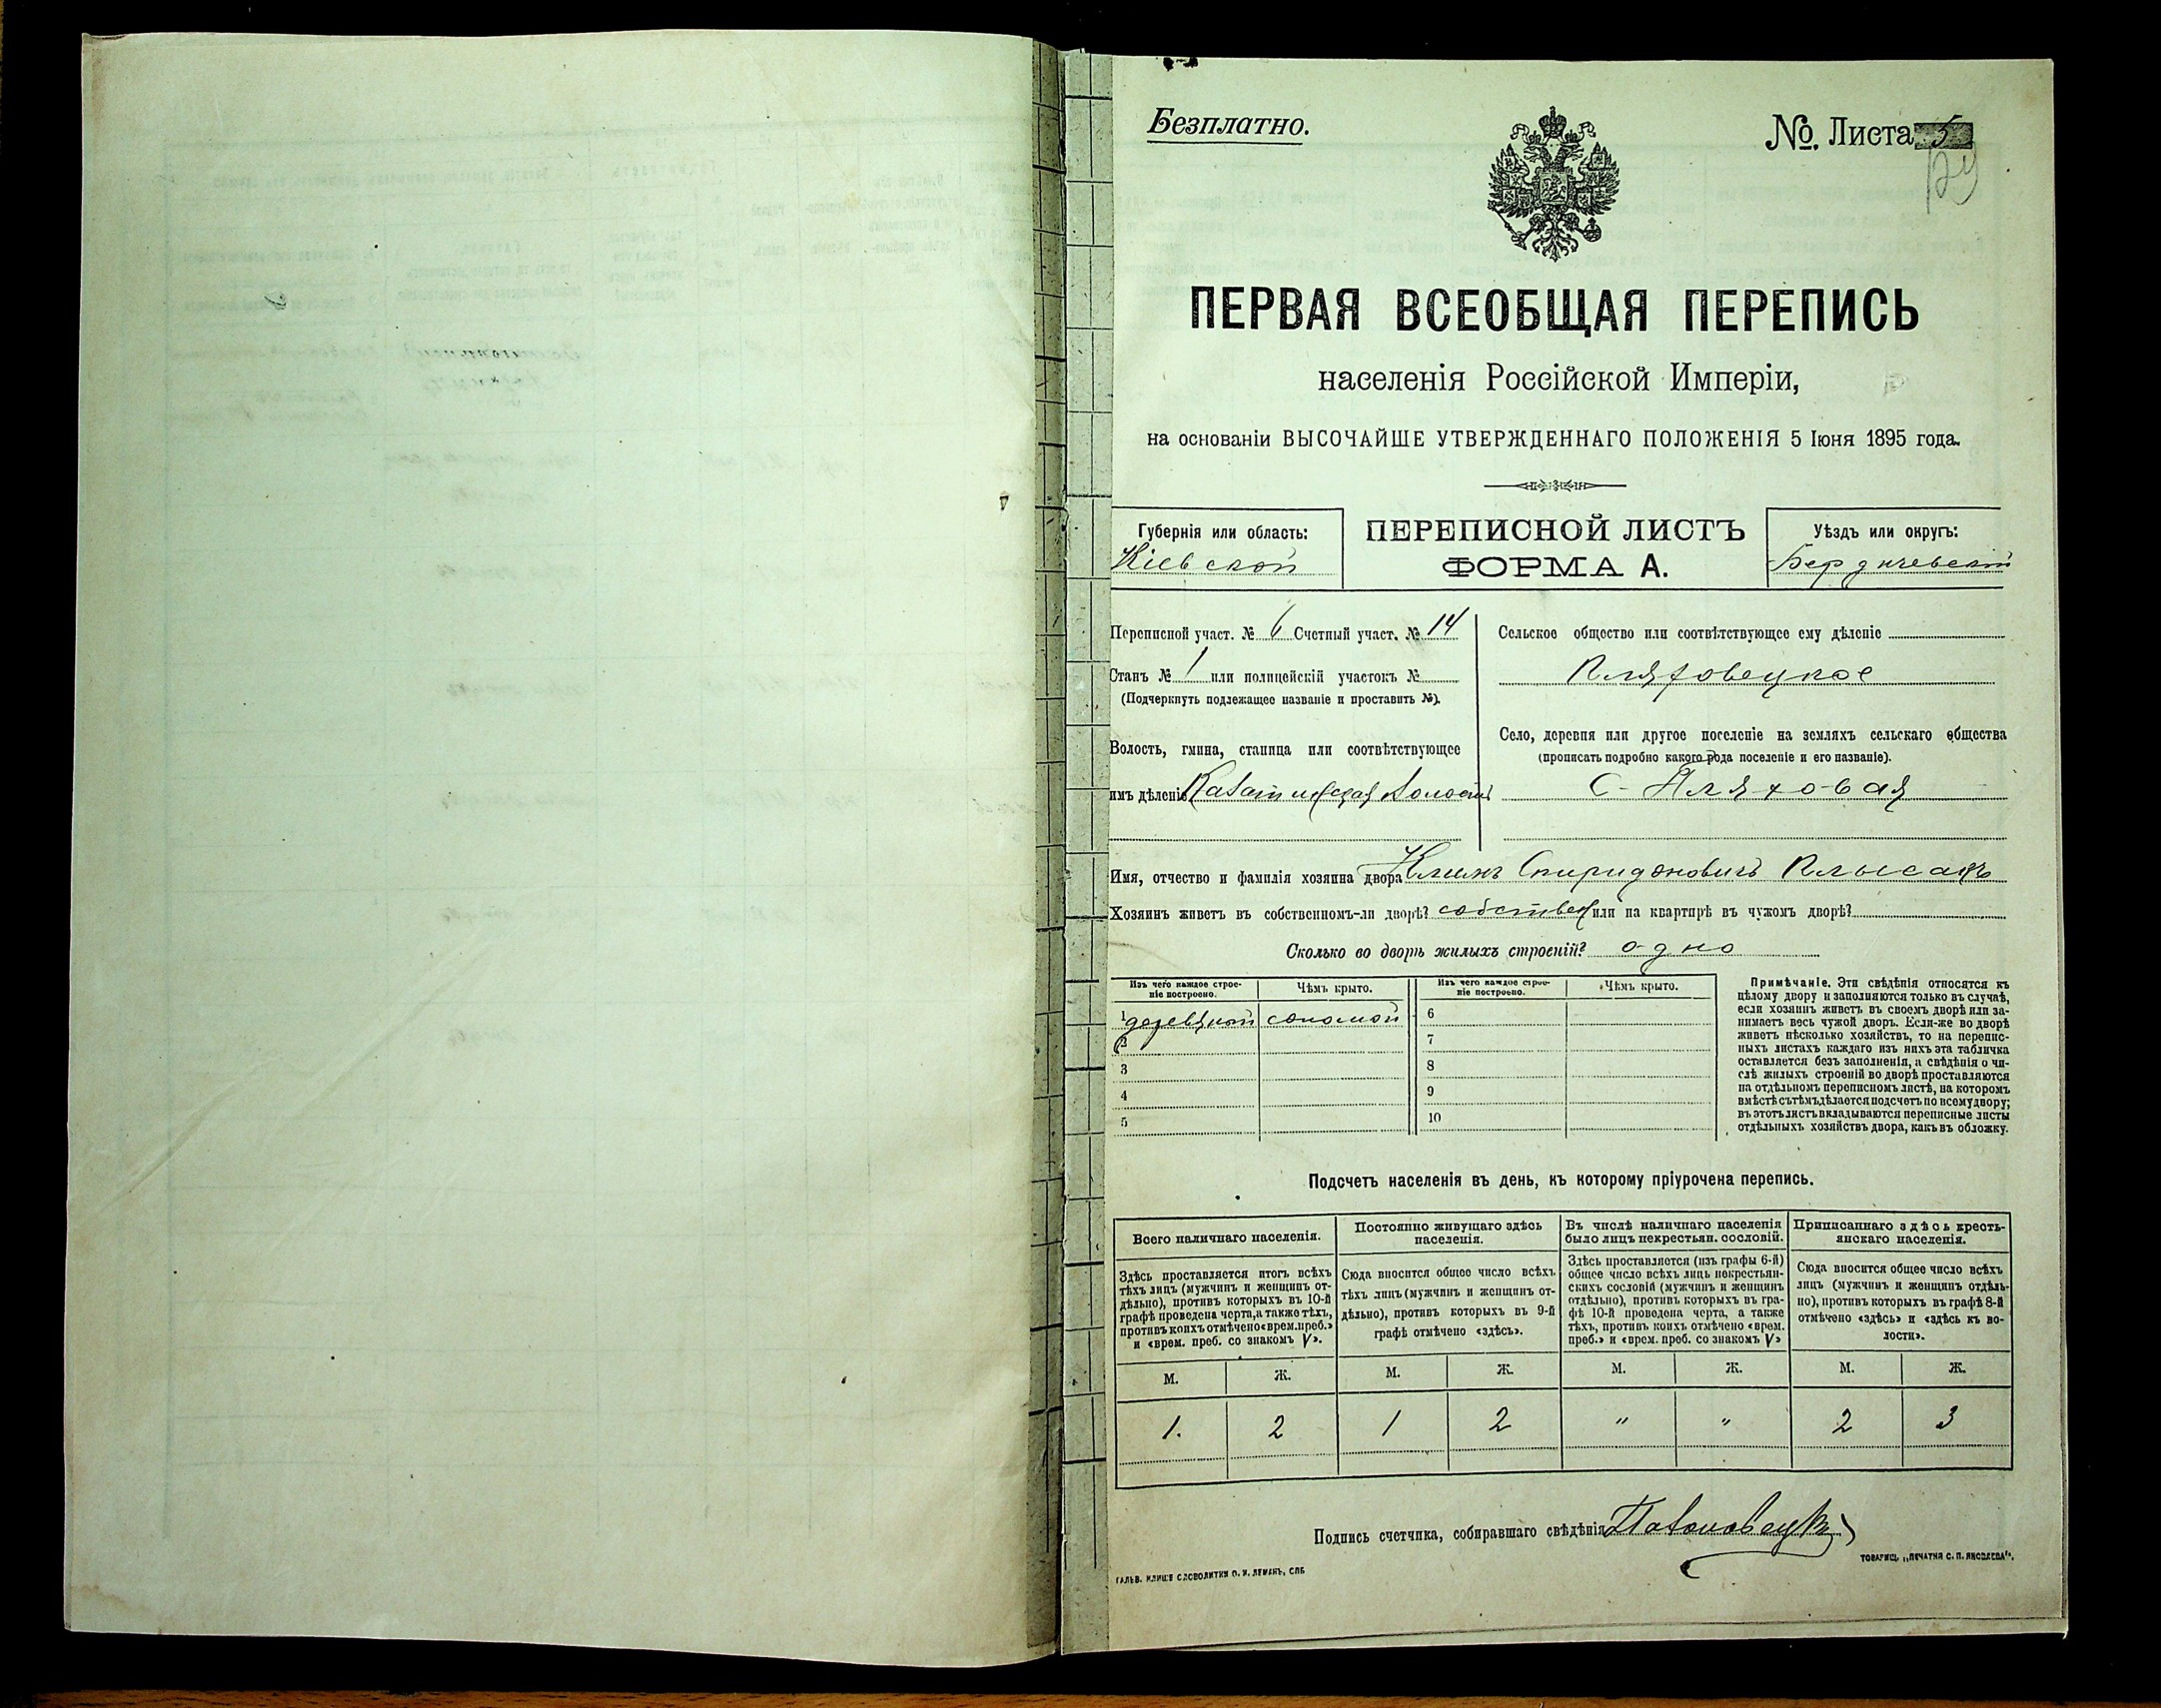 Безплатно.
№. Листа 5
ПЕРВАЯ ВСЕОБЩАЯ ПЕРЕПИСЬ
населенія Россійской Имперіи,
на основаніи ВЫСОЧАЙШЕ УТВЕРЖДЕННАГО ПОЛОЖЕНІЯ 5 Іюня 1895 года.
Губернія или область:
Кіевской
ПЕРЕПИСНОЙ ЛИСТЪ
ФОРМА А.
Уѣздъ или округъ:
Бердичевскій
Переписной участ. № 6 Счетный участ. № 14
Станъ № 1 или полицейскій участокъ №
(Подчеркнуть подлежащее названіе и проставить №).
Волость, гмина, станица или соотвѣтствующее
имъ дѣленіе волость
Сельское общество или соотвѣтствующее ему дѣленіе
Пляховецкое
Село, деревня или другое поселеніе на земляхъ сельскаго общества
(прописать подробно какого рода поселеніе и его названіе).
С. Пляховая
Имя, отчество и фамилія хозяина двора Климъ Спиридоновичъ
Хозяинъ живетъ въ собственномъ-ли дворѣ? или на квартирѣ въ чужомъ дворѣ?
Сколько во дворѣ жилыхъ строеній? одно
Изъ чего каждое строе-
ніе построено.
Чѣмъ крыто.
Изъ чего каждое строе-
ніе построено.
Чѣмъ крыто.
1 соломой 6
2 7
3 8
4 9
5 10
Примѣчаніе. Эти свѣдѣнія относятся къ
цѣлому двору и заполняются только въ случаѣ,
если хозяинъ живетъ въ своемъ дворѣ или за-
нимаетъ весь чужой дворъ. Если-же во дворѣ
живетъ нѣсколько хозяйствъ, то на перепис-
ныхъ листахъ каждаго изъ нихъ эта табличка
оставляется безъ заполненія, а свѣдѣнія о чи-
слѣ жилыхъ строеній во дворѣ проставляются
на отдѣльномъ переписномъ листѣ, на которомъ
вмѣстѣ съ тѣмъ дѣлается подсчетъ по всему двору;
въ этотъ листъ вкладываются переписные листы
отдѣльныхъ хозяйствъ двора, какъ въ обложку.
Подсчетъ населенія въ день, къ которому пріурочена перепись.
Всего наличнаго населенія.
Здѣсь проставляется итогъ всѣхъ
тѣхъ лицъ (мужчинъ и женщинъ от-
дѣльно), противъ которыхъ въ 10-й
графѣ проведена черта, а также тѣхъ,
противъ коихъ отмѣчено «врем. преб.»
и «врем. преб. со знакомъ V».
Постоянно живущаго здѣсь
населенія.
Сюда вносится общее число всѣхъ
тѣхъ лицъ (мужчинъ и женщинъ от-
дѣльно), противъ которыхъ въ 9-й
графѣ отмѣчено «здѣсь».
Въ числѣ наличнаго населенія
было лицъ некрестьян. сословій.
Здѣсь проставляется (изъ графы 6-й)
общее число всѣхъ лицъ некрестьян-
скихъ сословій (мужчинъ и женщинъ
отдѣльно), противъ которыхъ въ гра-
фѣ 10-й проведена черта, а также
тѣхъ, противъ коихъ отмѣчено «врем.
преб.» и «врем. преб. со знакомъ V»
Приписаннаго здѣсь кресть-
янскаго населенія.
Сюда вносится общее число всѣхъ
лицъ (мужчинъ и женщинъ отдѣль-
но), противъ которыхъ въ графѣ 8-й
отмѣчено «здѣсь» и «здѣсь къ во-
лости».
М. Ж. М. Ж. М. Ж. М. Ж.
1. 2 1 2 " " 2 3
Подпись счетчика, собиравшаго свѣдѣнія
ГАЛЬВ. КЛИШЕ СЛОВОЛИТНИ О. И. ЛЕМАНЪ, СПБ
ТОВАРИЩ. „ПЕЧАТНЯ С. П. ЯКОВЛЕВА“.